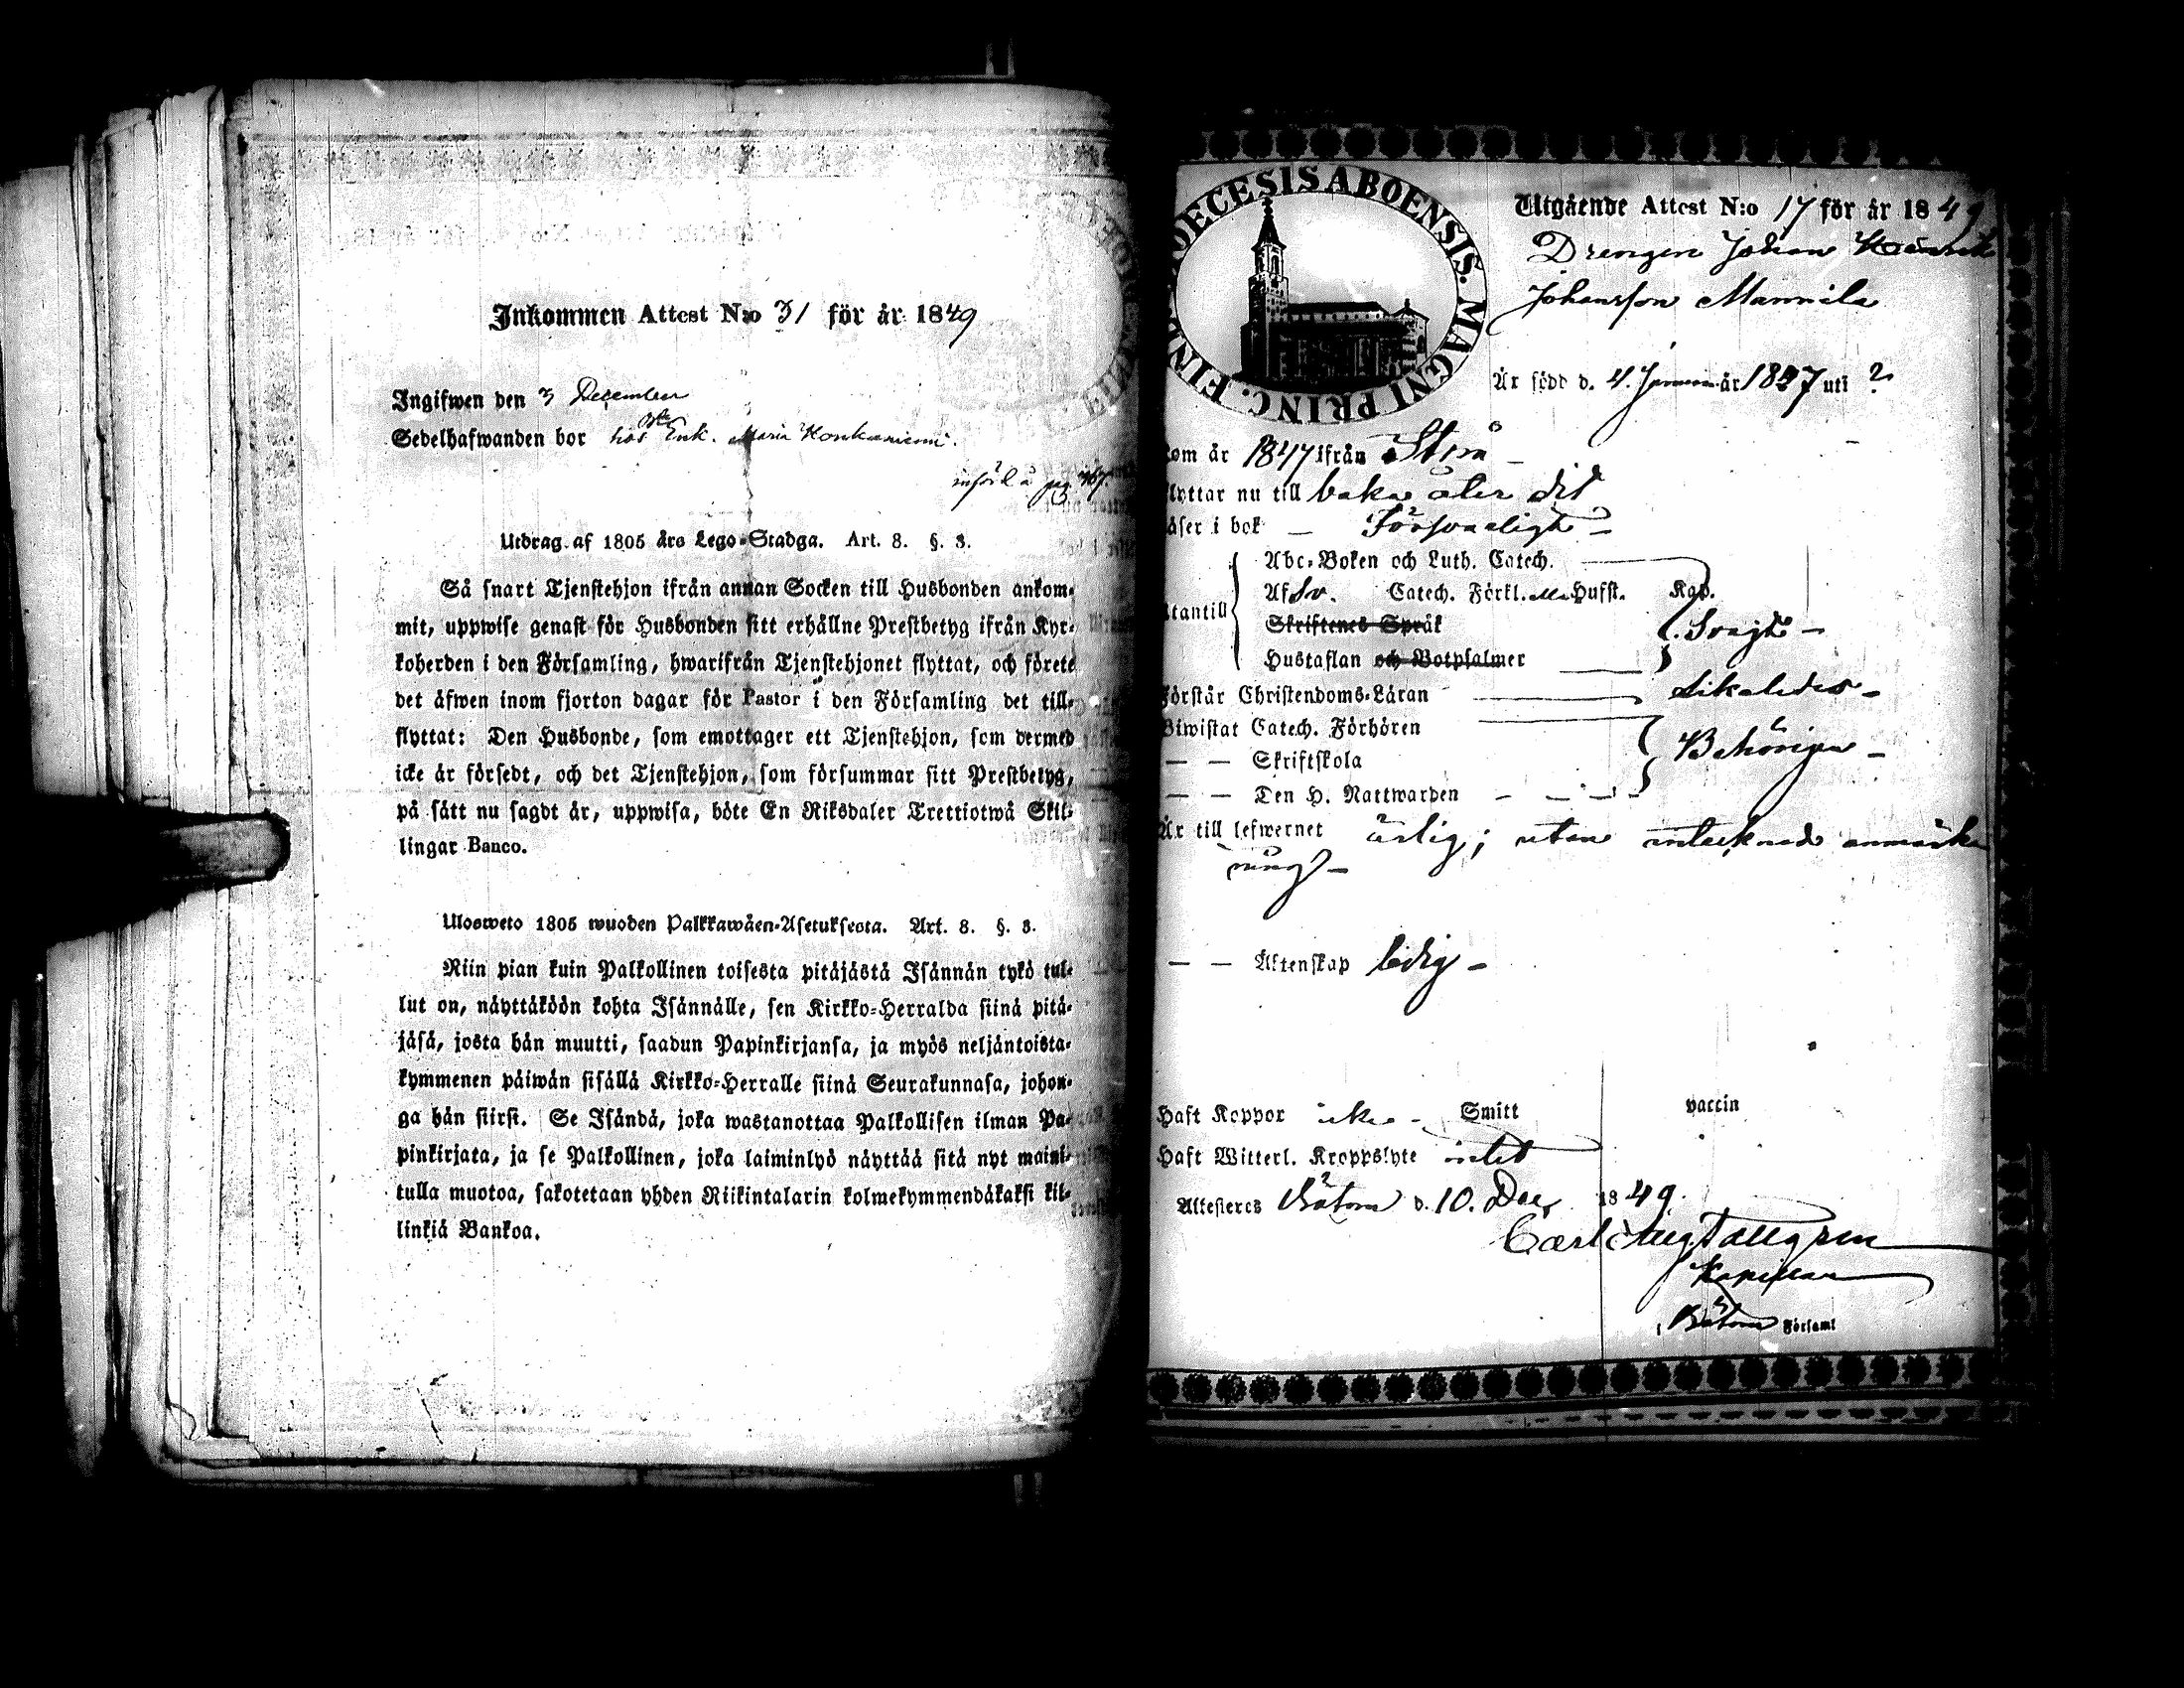 Inkommen Attest N:o 31 för år 1849
Ingifwen den 3 December
Sedelhafwanden bor hos Enk. Maria Honkaniemi.
införd å pag
Utdrag af 1805 års Lego-Stadga. Art. 8. §. 3.
Så snart Tjenstehjon ifrån annan Socken till Husbonden ankom-
mit, uppwise genast för Husbonden sitt erhållne Prestbetyg ifrån Kyr-
koherden i den Församling, hwarifrån Tjenstehjonet flyttat, och förete
det äfwen inom fjorton dagar för Pastor i den Församling det till-
flyttat: Den Husbonde, som emottager ett Tjenstehjon, som dermed
icke är försedt, och det Tjenstehjon, som försummar sitt Prestbetyg,
på sätt nu sagdt är, uppwisa, böte En Riksdaler Trettiotwå Skil-
lingar Banco.
Ulosweto 1805 wuoden Palkkawäen-Asetuksesta. Art. 8. §. 3.
Niin pian kuin Palkollinen toisesta pitäjästä Isännän tykö tul-
lut on, näyttäköön kohta Isännälle, sen Kirkko-Herralda siinä pitä-
jäsä, josta hän muutti, saadun Papinkirjansa, ja myös neljäntoista-
kymmenen päiwän sisällä Kirkko-Herralle siinä Seurakunnasa, johon-
ga hän siirsi. Se Isändä, joka wastanottaa Palkollisen ilman Pa-
pinkirjata, ja se Palkollinen, joka laiminlyö näyttää sitä nyt maini-
tulla muotoa, sakotetaan yhden Riikintalarin kolmekymmendäkaksi kil-
linkiä Bankoa.
DECESIS ABOENSIS. MAGNI PRINC. FINL.
Utgående Attest N:o 17 för år 1849
Drengen Johan
Johansson Mannila
Är född d. 4. år 1827 uti ?
kom år 1847 ifrån Storå
flyttar nu till baka åter dit
läser i bok — Försvarligt —
Abc-Boken och Luth. Catech.
Af Sv. Catech. Förkl. Hufst. Kap.
utantill Skriftenes Språk Svagt —
Hustaflan och Botpsalmer
Förstår Christendoms-Läran Likaledes —
Biwistat Catech. Förhören
— — Skriftskola Behörigen —
— — Den H. Nattwarden
Är till lefwernet ärlig; utan antecknad anmärk
ning —
— — Äktenskap ledig —
Haft Koppor icke — Smitt vaccin
Haft Witterl. Kroppslyte intet
Attesteres Bötom d. 10. Dec. 1849.
Carl Aug Tallgren
Kapellan
i Bötom Församl